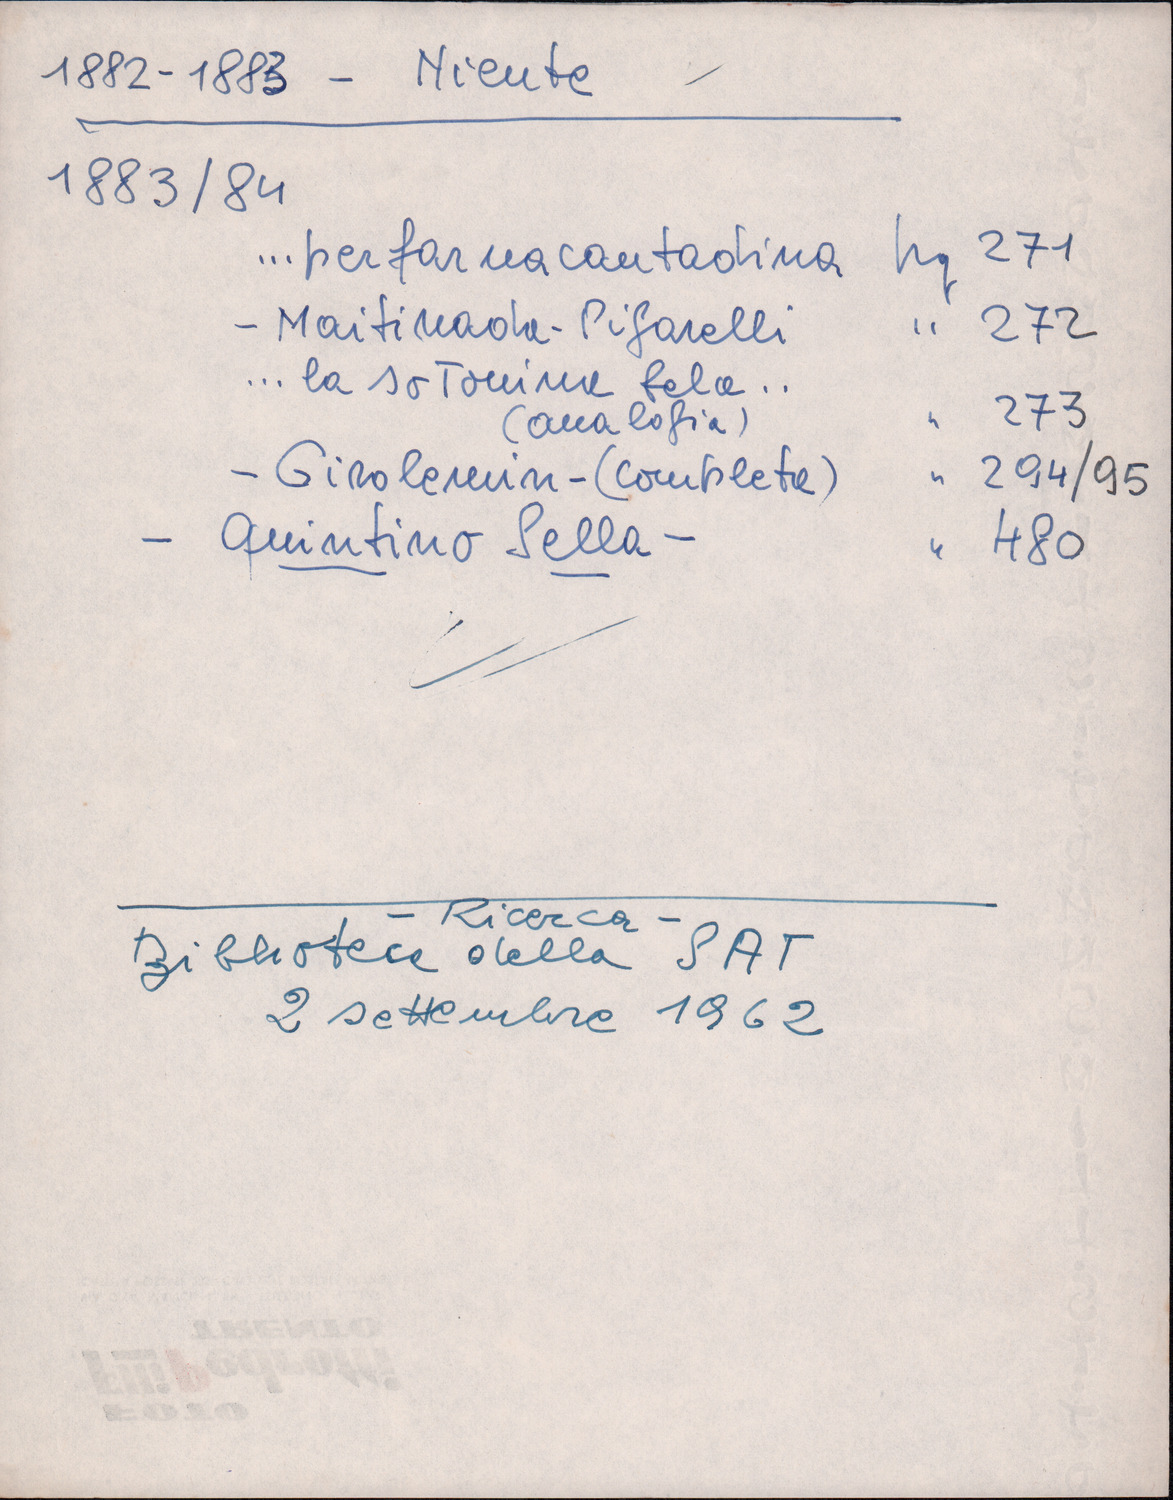 1882-1883 - Niente
1883/84
...per far na cantadina pg 271
- Maitinada - Pigarelli " 272
... la so Tonina bela ..
(analogia) " 273
- Girolemin - (completa) " 294/95
- Quintino Sella - " 480
- Ricerca -
Biblioteca della SAT
2 settembre 1962